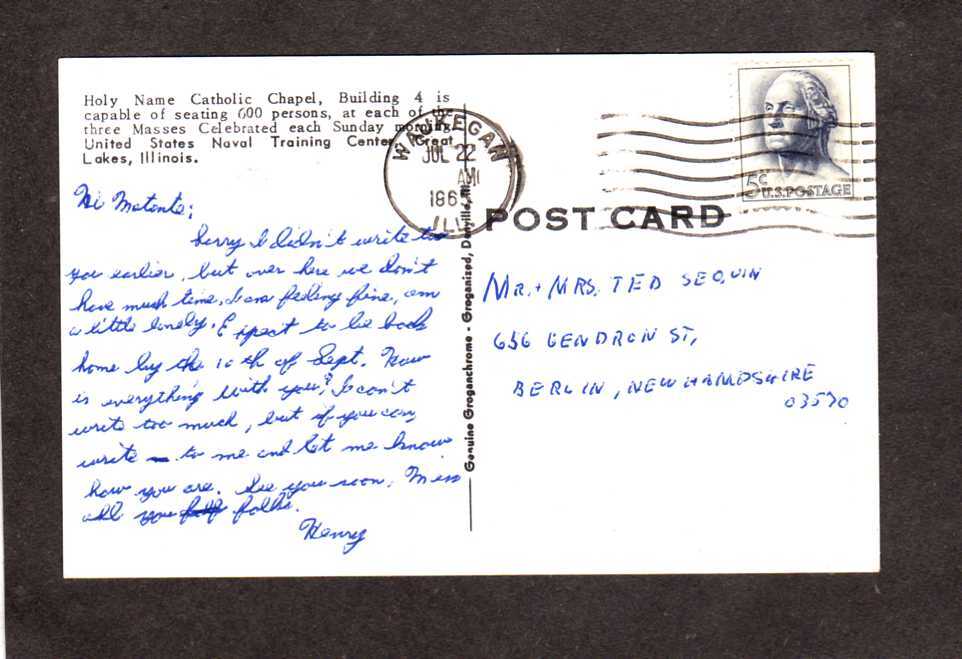 Holy Name Catholic Chapel, Building 4 is
capable of seating 600 persons, at each of the
three Masses Celebrated each Sunday morning
United States Naval Training Center, Great
Lakes, Illinois.
Hi Matante;
Sorry I didn't write to
you earlier, but over here we don't
have much time. I am feeling fine, am
a little lonely. Expect to be back
home by the 10th of Sept. How
is everything with you? I can't
write too much, but if you can,
write to me and let me know
how you are. See you soon. Miss
all you folks.
Henry
WAUKEGAN
JUL 22
AM
196
ILL
5¢
U.S.POSTAGE
POST CARD
Genuine Groganchrome - Groganized, Danville, Ill.
MR. + MRS. TED SEQUIN
656 GENDRON ST,
BERLIN, NEW HAMPSHIRE
03570